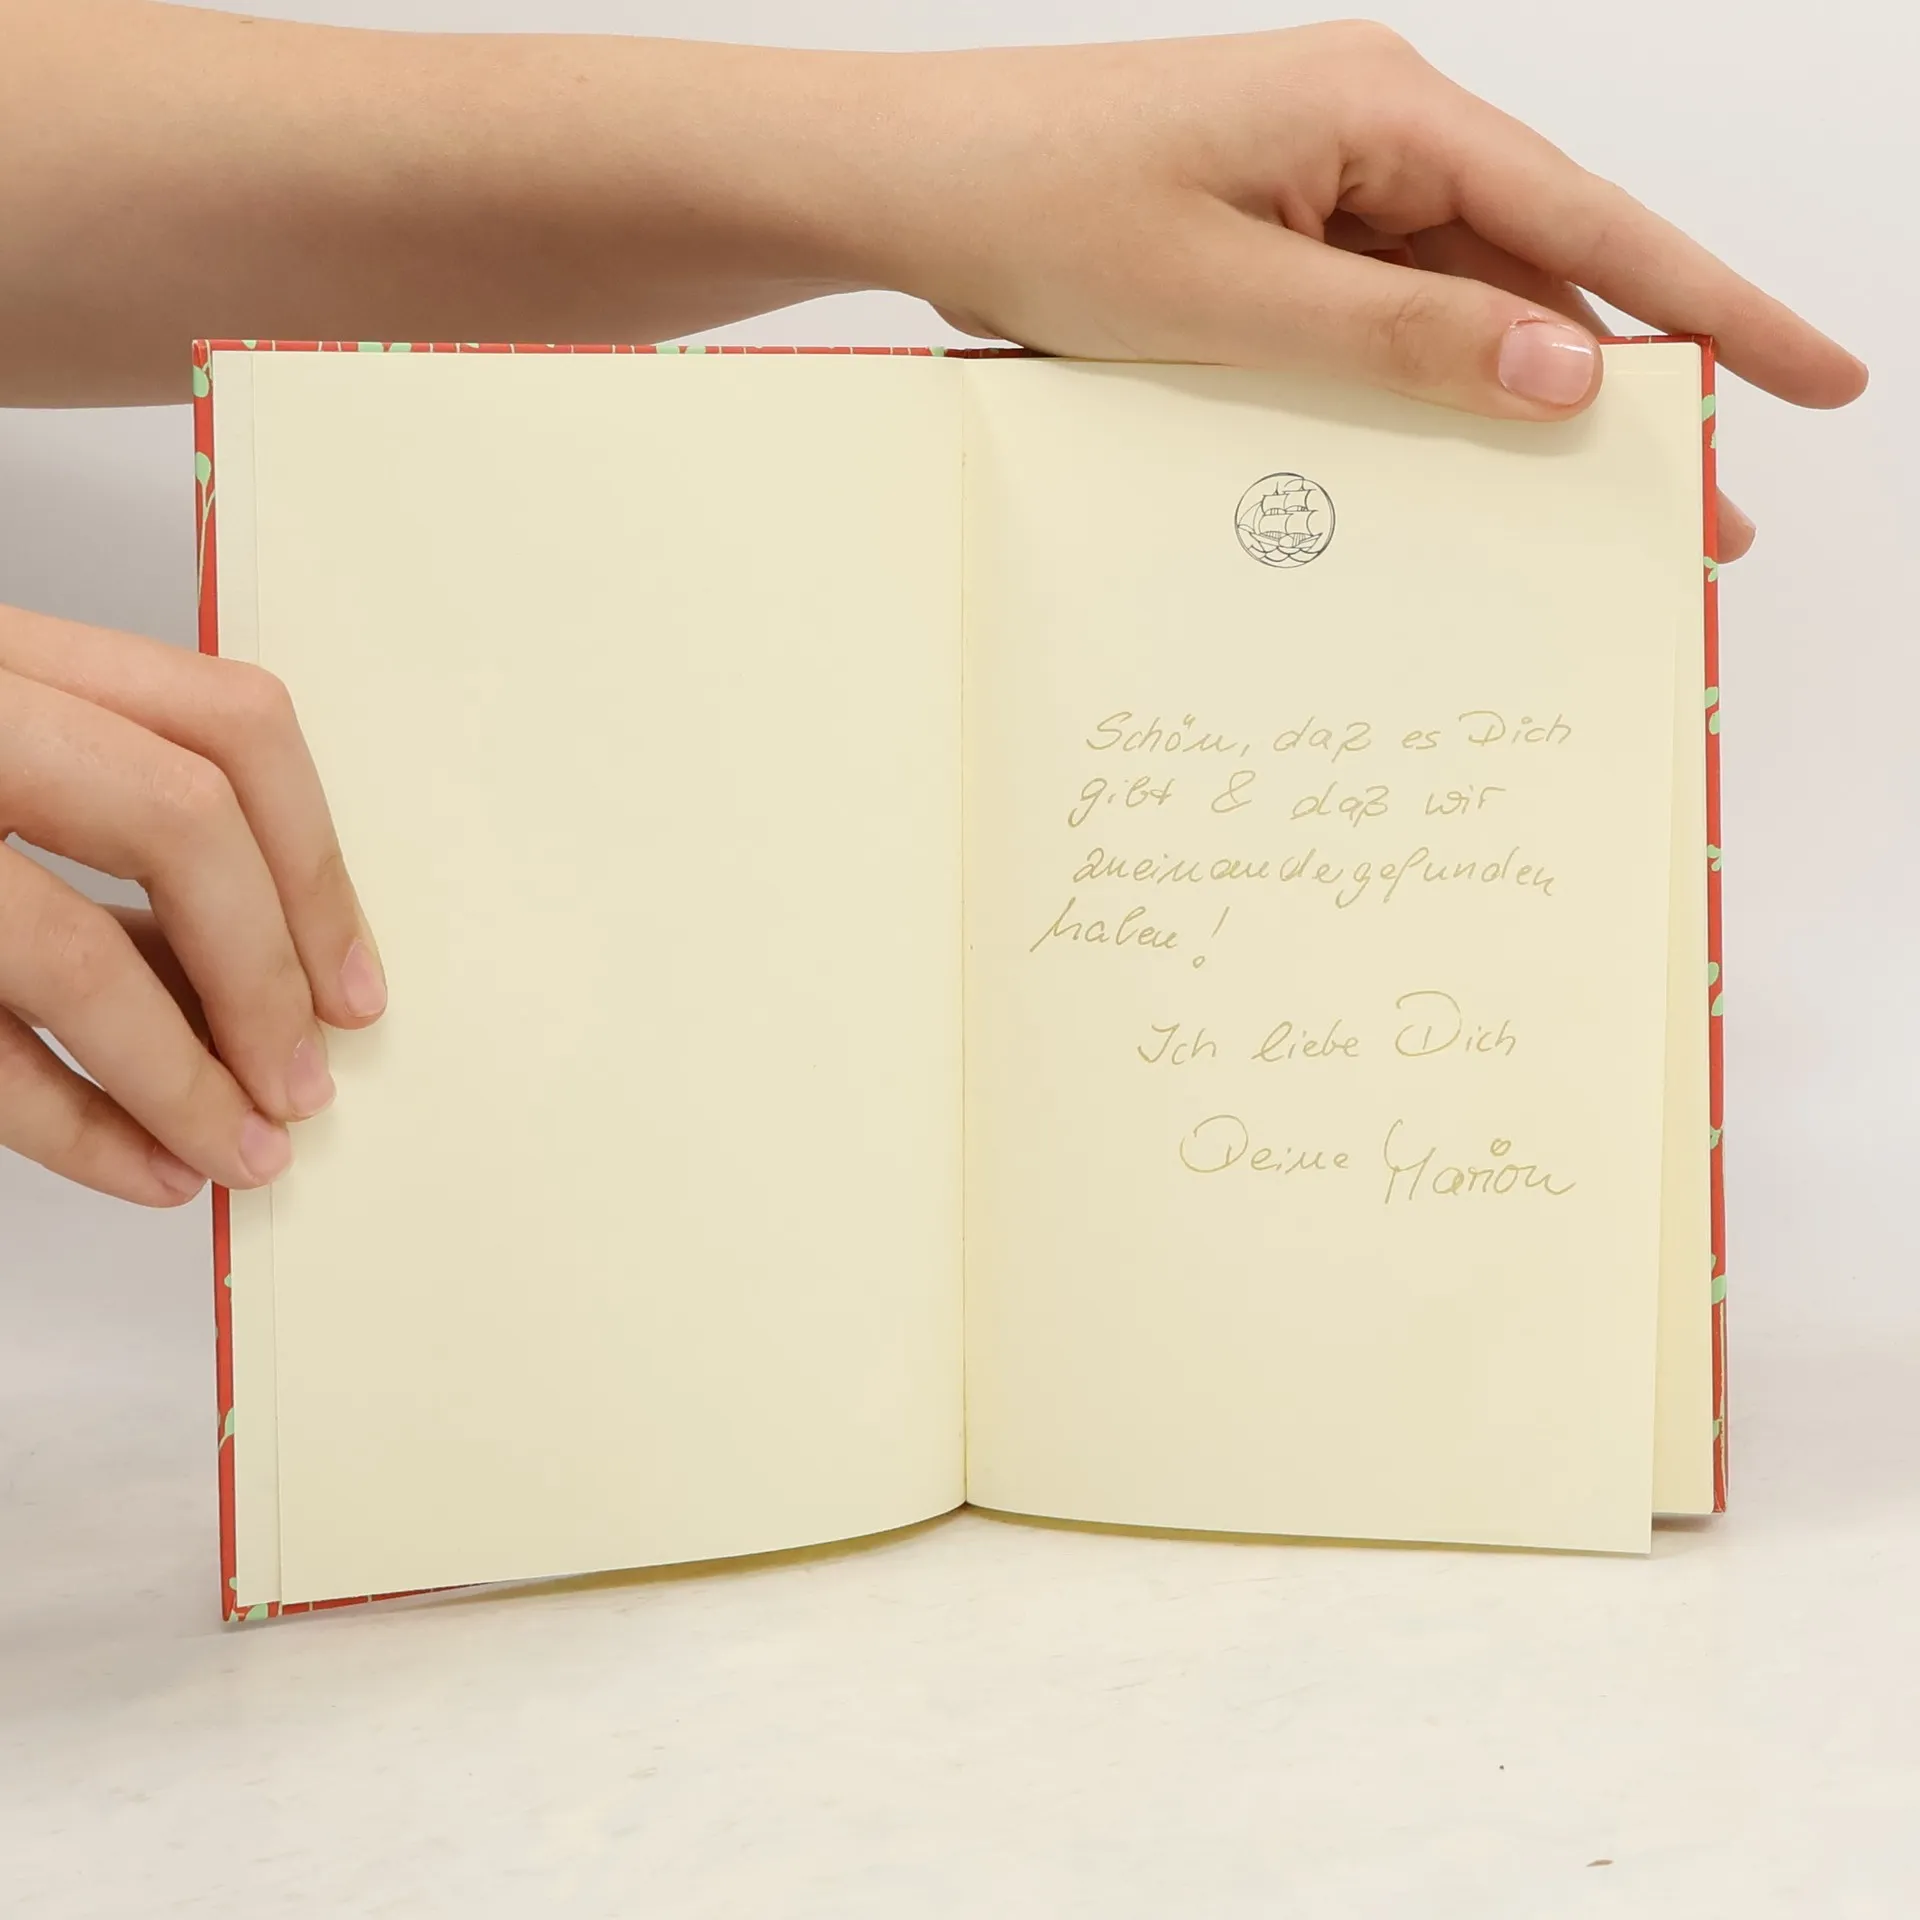 Schön, daß es Dich
gibt & daß wir
zueinandergefunden
haben!
Ich liebe Dich
Deine Marion